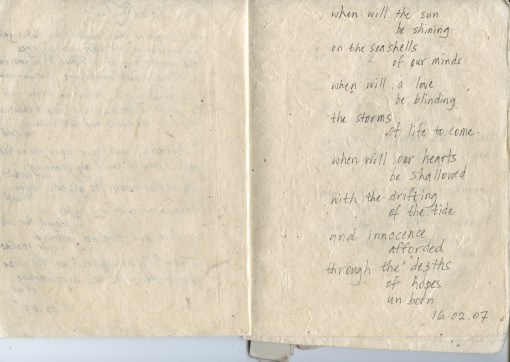 when will the sun
be shining
on the seashells
of our minds
when will a love
be blinding
the storms
of life to come
when will our hearts
be shallowed
with the drifting
of the tide
and innocence
afforded
through the depths
of hopes
un born
16.02.07